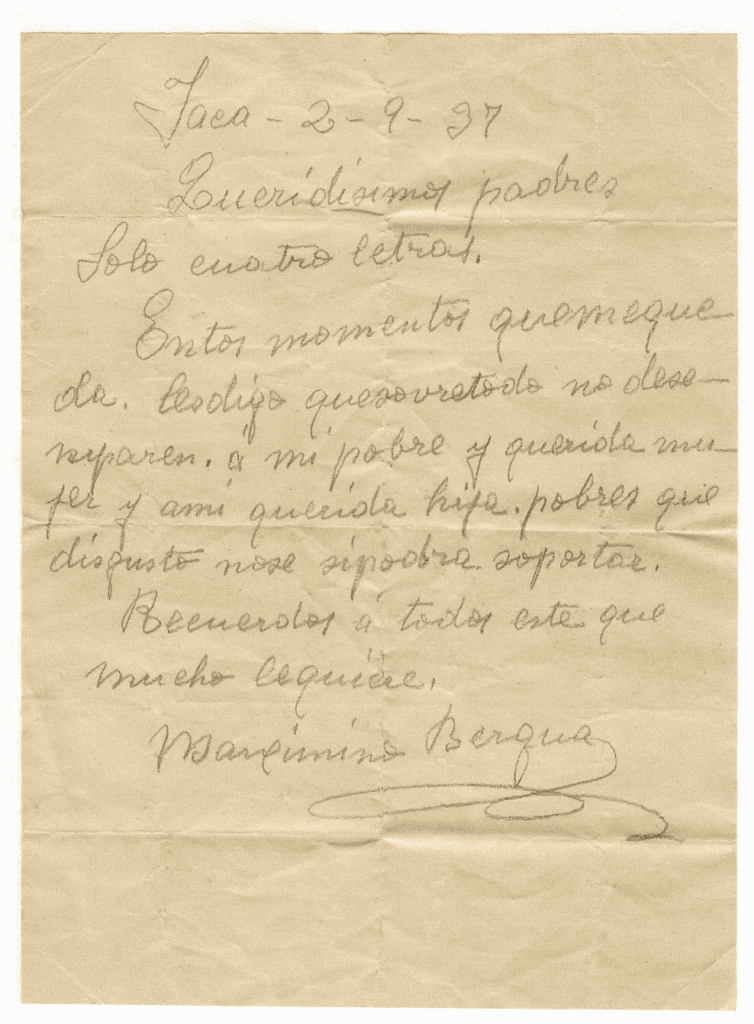 Jaca - 2 - 9 - 37
Queridisimos padres
Solo cuatro letras.
Entos momentos quemeque
da. lesdigo quesovretodo no dese-
nparen. á mi pobre y querida mu-
jer y ami querida hija. pobres que
disgusto nose sipodra soportar.
Recuerdos á todos este que
mucho lequiere.
Maximino Bergua